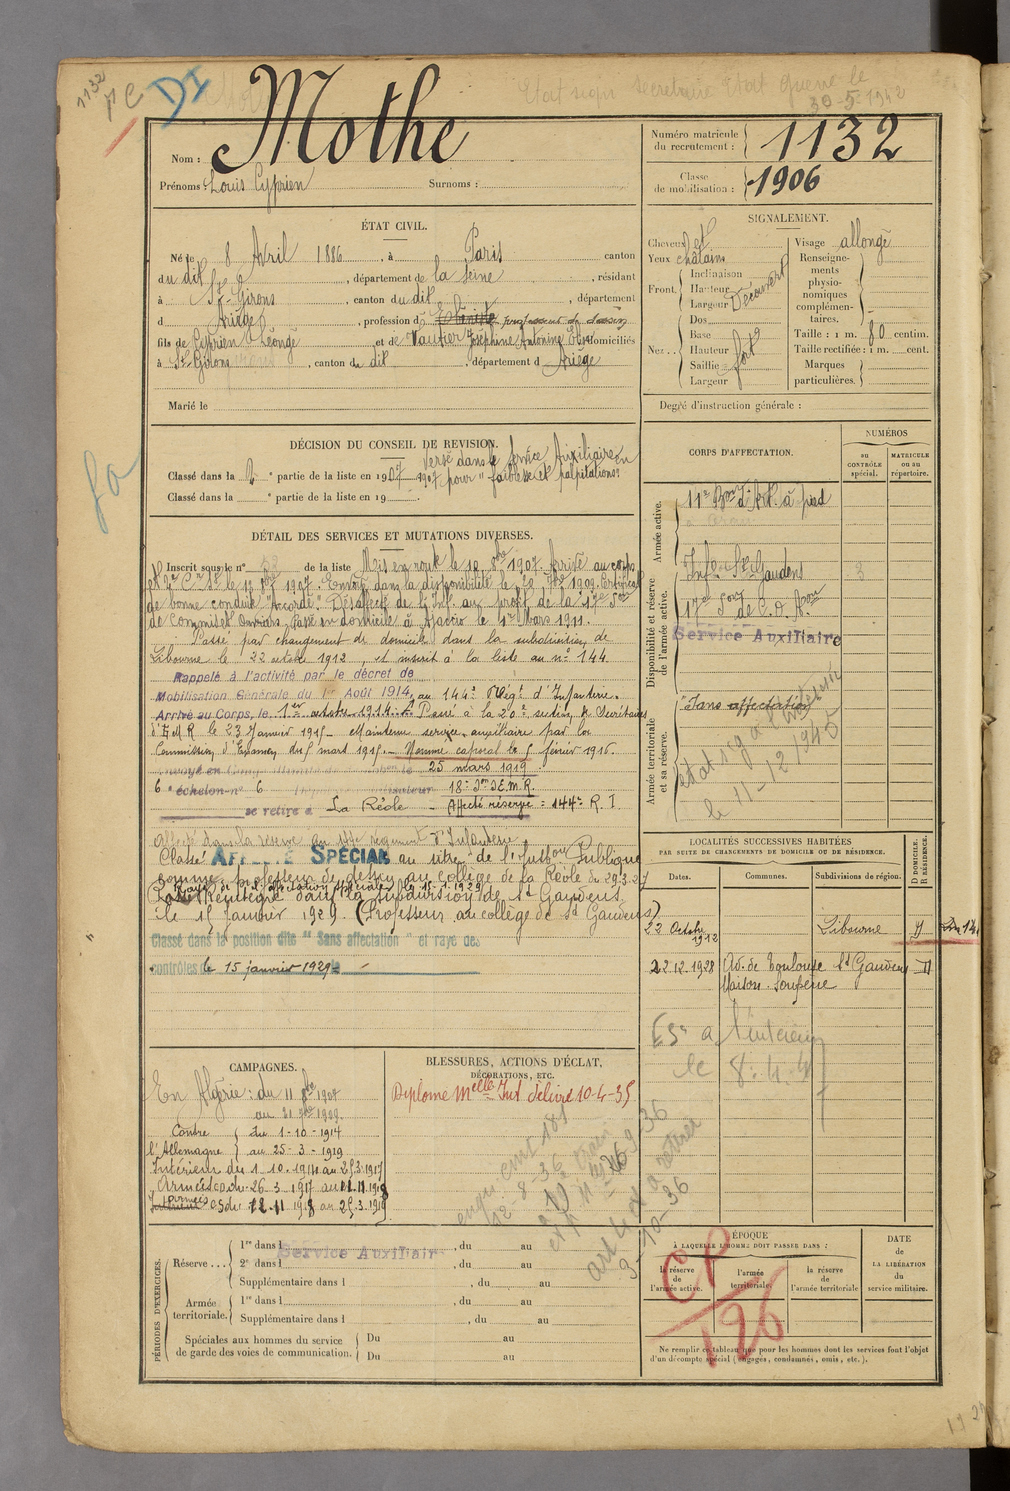 1132
DI
Etat signé secrétaire Etat Guerre le
30-5-1942
Nom : Mothe
Prénoms : Louis Cyprien Surnoms :
Numéro matricule du recrutement : 1132
Classe de mobilisation : 1906
ÉTAT CIVIL.
Né le 8 Avril 1886, à Paris canton
du dit, département de la Seine, résidant
à St-Girons, canton du dit, département
d Ariège, profession d professeur de dessin
fils de Cyprien Léonge et de Vautier Joséphine Antonine domiciliés
à St Girons, canton du dit, département d Ariège
Marié le
SIGNALEMENT.
Cheveux et
Yeux châtains
Front. Inclinaison
Hauteur
Largeur Découvert
Nez .. Dos
Base
Hauteur
Saillie fort
Largeur
Visage allongé
Renseignements physionomiques complémentaires.
Taille : 1 m. 80 centim.
Taille rectifiée : 1 m. cent.
Marques particulières.
Degré d'instruction générale :
DÉCISION DU CONSEIL DE REVISION.
Classé dans la partie de la liste en 1907 Versé dans le Service Auxiliaire en
1907 pour "faiblesse et palpitations"
Classé dans la e partie de la liste en 19
DÉTAIL DES SERVICES ET MUTATIONS DIVERSES.
Inscrit sous le n° de la liste Mis en route le 10 8bre 1907. Arrivé au corps
et 2e Cr St le 11 8bre 1907. Envoyé dans la disponibilité le 1909. Certificat
de bonne conduite "Accordé". Désaffecté de l'Inf. au profit de la 17e Son
de Commis et Ouvriers. Passé en domicile à Ajaccio le 1er Mars 1911.
Passé par changement de domicile dans la subdivision de
Libourne le 22 octobre 1912, et inscrit à la liste au n° 144
Rappelé à l'activité par le décret de
Mobilisation Générale du 1er Août 1914, au 144e Régt d'Infanterie.
Arrivé au Corps, le 1er octobre 1914. Passé à la 20e section de Secrétaires
d'E.M.R le 23 Janvier 1915 - Maintenu service auxiliaire par la
Commission d'Examen du 5 mars 1915. - Nommé caporal le 5 février 1916.
25 mars 1919
6e échelon n° 6 18e Son S.E.M.R.
se retire à La Réole - Affecté réserve = 144e R.I.
Affecté dans la réserve au 144e régiment d'Infanterie
Classé AFFECTÉ SPÉCIAL au titre de l'Instion Publique
comme professeur de dessin au collège de la Réole du 29.3.27
Rayé de l'affectation spéciale le 15.1.1929
Réintégré dans la subdivision de St Gaudens
le 15 Janvier 1929. (Professeur au collège de St Gaudens)
Classé dans la position dite "Sans affectation" et rayé des
contrôles le 15 janvier 1929
CORPS D'AFFECTATION.
NUMÉROS
au CONTRÔLE spécial.
MATRICULE ou au répertoire.
Armée active.
11e Bon d'Art. à pied
Disponibilité et réserve de l'armée active.
Infie St Gaudens
17e Son de C.O. Aon
Service Auxiliaire
Armée territoriale et sa réserve.
"Sans affectation"
état sig à l'intérieur
le 11-12 1945
LOCALITÉS SUCCESSIVES HABITÉES
PAR SUITE DE CHANGEMENTS DE DOMICILE OU DE RÉSIDENCE.
Dates. Communes. Subdivisions de région. D DOMICILE. R RÉSIDENCE.
22 Octobre 1912 Libourne
22.12.1928 Av. de Toulouse St Gaudens D
Maison
ESr a l'intérieur
le 8.4.4
CAMPAGNES.
En Algérie : du 11 8bre 1907
au 21 1909.
Contre l'Allemagne du 1-10-1914
au 25-3-1919
Intérieur du 1.10.1914 au 25.3.1917
Armées du 26-3 1917 au 11.11.1918
Intérieur du 12.11 1918 au 25.3.1919
BLESSURES, ACTIONS D'ÉCLAT,
DÉCORATIONS, ETC.
Diplome Melle Inf délivré 10-4-35
12-8-36
3-10-36
PÉRIODES D'EXERCICES.
Réserve ... 1re dans l Service Auxiliaire, du au
2e dans l, du au
Supplémentaire dans l, du au
Armée territoriale. 1re dans l, du au
Supplémentaire dans l, du au
Spéciales aux hommes du service de garde des voies de communication. Du au
Du au
ÉPOQUE
À LAQUELLE L'HOMME DOIT PASSER DANS :
la réserve de l'armée active.
l'armée territoriale.
la réserve de l'armée territoriale
DATE de LA LIBÉRATION du service militaire.
CP
126
Ne remplir ce tableau que pour les hommes dont les services font l'objet
d'un décompte spécial (engagés, condamnés, omis, etc.).